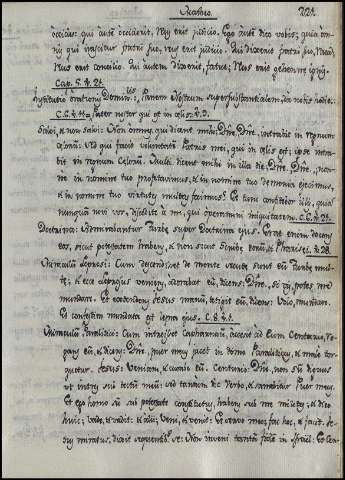 Oratio. 221.
occidas: qui autē occiderit, Reus erit judicio. Ego autē dico vobis; quia om̄
nis qui irascitur fratri suo, reus erit judicio. Qui dixerit fratri suo, Raca,
Reus erit concilio. Qui autem dixerit, fatue; Reus erit gehennæ ignis.
Cap. 5. ℣. 21.
Institutio orationis Dominicalis, Panem Nostrum supersubstantialem, da nobis hodie.
Pater noster qui es in cælis. ℣. 9.
Salvi, & non salvi: Non omnis, qui dicit mihi Dn̄e, Dn̄e, intrabit in regnum
cælorū. Sed qui facit voluntatē Patris mei, qui in cælis est; ipse intra-
bit in regnum Cælorū. Multi dicent mihi in illa die: Dn̄e, Dn̄e,
in nomine tuo prophetavimus, & in nomine tuo demonia ejecimus,
& in nomine tuo virtutes multas fecimus? Et tum confitebor illis, quia
numquam novi vos, discedite a me, qui operamini iniquitatem.
Doctrina: Admirabantur turbæ super Doctrina ejus. Erat enim docens
eos, sicut potestatem habens, & non sicut Scribæ eorū, & Pharisæi. ℣. 28.
Miraculū Leprosi: Cum descendisset de monte secutæ sunt eū turbæ mul-
tæ; & ecce Leprosus veniens, adorabat eū, dicens: Dn̄e, si vis, potes me
mundare. Et extendens Jesus manū, tetigit eū, dicens: Volo, mundare.
Et confestim mundata est lepra ejus. C. 8. ℣. 1.
Miraculū Paralitici: Cum introisset Capharnaū, accessit ad Eum Centurio, ro-
gans eū, & dicens: Dn̄e, puer meus jacet in domo Paraliticus, & male tor-
quetur. Jesus: Veniam, & curabo eū. Centurio: Dn̄e, non sū dignus
ut intres sub tectū meū: sed tantum dic Verbo, & sanabitur Puer meus.
Et ego homo sū sub potestate constitutus, habens sub me milites; & dico
huic; vade, & vadit: & alii; veni, & venit: Et servo meo; fac hoc, & facit. Je-
sus miratus, dixit sequentibus se: Non inveni tantā fidē in Israël: Et Cen-